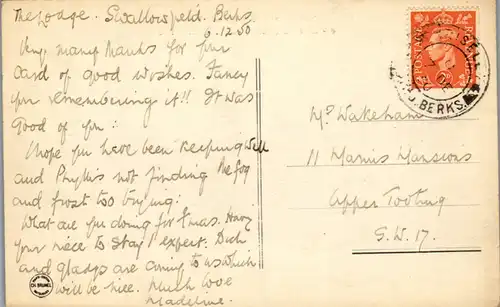 The Lodge. Swallowfield. Berks.
6.12.50
Very many thanks for your
card of good wishes. Fancy
yr remembering it!! It was
good of you:
I hope you have been keeping well
and Phyllis not finding the fog
and frost too trying:
What are you doing for Xmas. Having
your niece to stay I expect. Dick
and Gladys are coming to us which
will be nice. Much love
Madeline.
POSTAGE
BERKS.
Mrs Wakeham
11 Manor Mansions
Upper Tooting
S.W. 17.